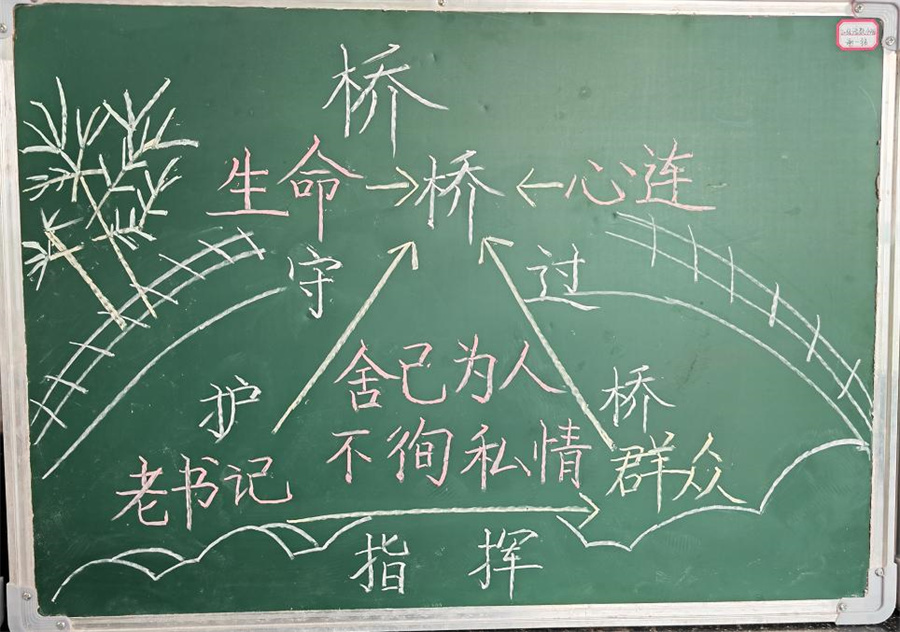 桥
生命→桥←心连
守 过
舍己为人
护 桥
不徇私情
老书记 群众
指挥